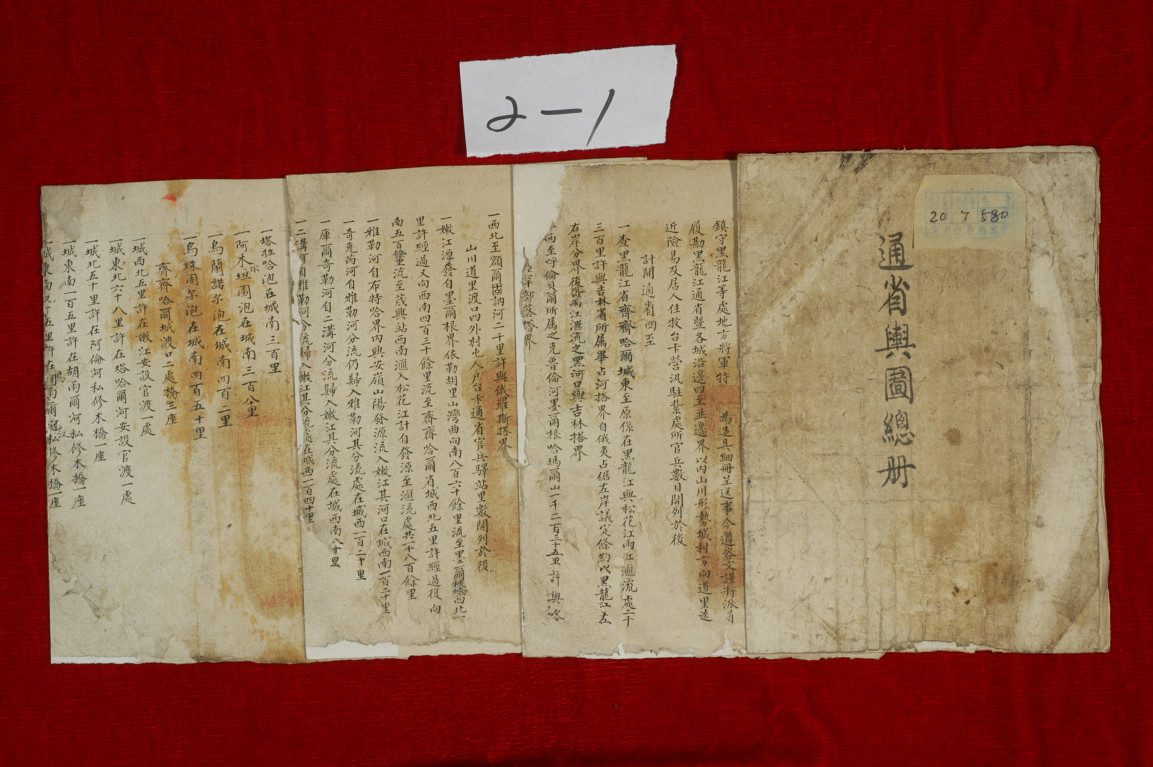 2-1
20 7 580
通省輿圖總册
鎮守黑龍江等處地方將軍特 為造具細冊呈送事今遵咨文謹將派員
履勘黑龍江通省暨各城沿邊四至並邊界以內山川形勢城村方向道里遠
近險易及居人住牧台卡營汛駐紮處所官兵數目開列於後
計開通省四至
一查黑龍江省齊齊哈爾城東至原係在黑龍江與松花江兩江滙流處二千
三百里許與吉林省所属畢占河搭界自俄夷占倨左岸議定條約以黑龍江左
右岸分界後當兩江滙流之黑河口與吉林搭界
西至呼倫貝爾所属之克魯倫河墨爾根哈瑪爾山一千二百三十五里許與喀
部落搭界
一西北至額爾古訥河二千里許與俄羅斯搭界
山川道里渡口四外村屯人戶台卡通省官兵驛站里數開列於後
一嫩江源發自墨爾根界依勒胡里山灣曲向南八百六十餘里流至墨爾根城西北一
里許經過又向西南四百三十餘里流至齊齊哈爾省城西北五里許經過復向
南五百里流至茂興站西南滙入松花江計自發源至滙流處共一千八百餘里
一雅勒河自布特哈界內興安嶺山陽發源流入嫩江其河口在城西南一百二十里
一奇克河自雅勒河分流仍歸入雅勒河其分流處在城西一百二十里
一庫爾奇勒河自二溝河分流歸入嫩江其分流處在城西南八十里
一二溝河自雅勒河分流歸入嫩江其分流處在城西一百四十里
一塔拉哈泡在城南三百里
一阿木坦園泡在城南三百八里
一烏蘭諾尔泡在城南四百二里
一烏珠園尔泡在城南四百五十里
齊齊哈爾城渡口二處橋三座
一城西北五里許在嫩江安設官渡一處
一城東北六十八里許在塔哈爾河安設官渡一處
一城北五十里許在阿倫河私修木橋一座
一城東南一百五里許在胡南爾河私修木橋一座
一城東南 五里許在 南爾 私修木橋一座